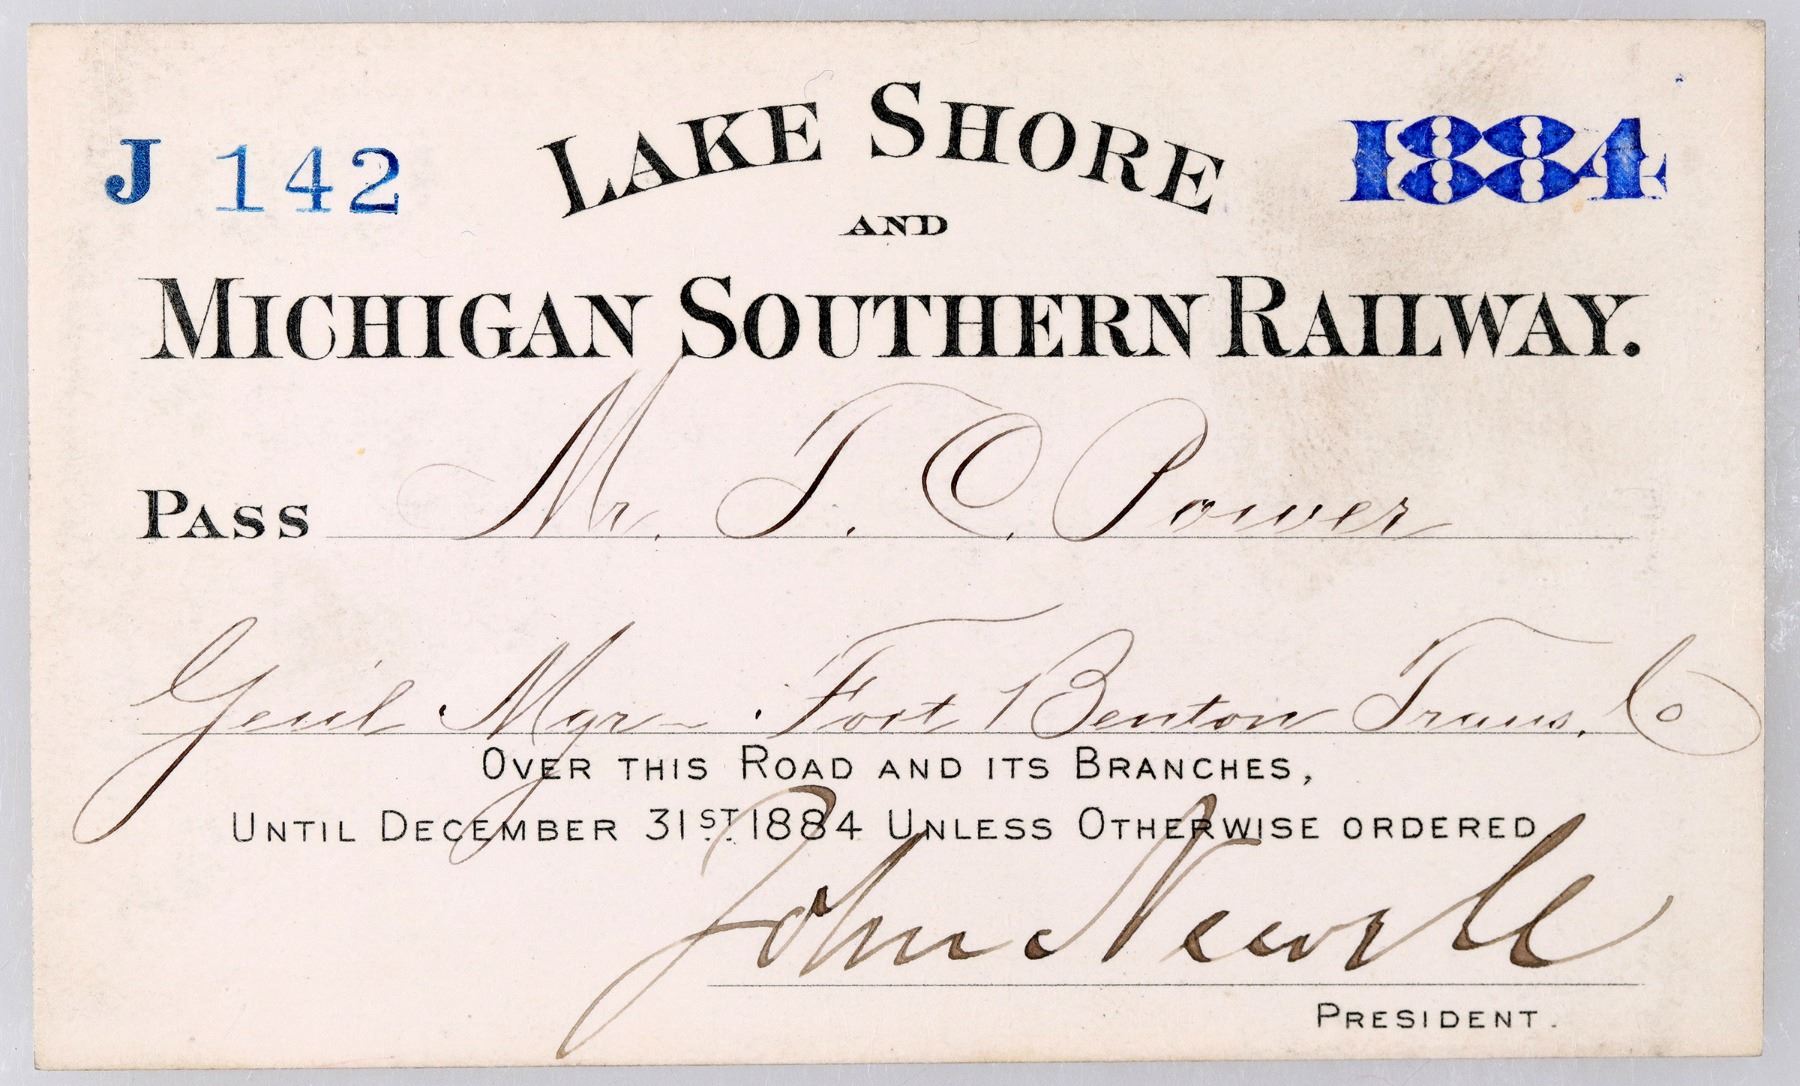 J 142
LAKE SHORE
1884
AND
MICHIGAN SOUTHERN RAILWAY.
PASS Mr. T. C. Power
Gen'l Mgr - Fort Benton Trans. Co
OVER THIS ROAD AND ITS BRANCHES,
UNTIL DECEMBER 31ST 1884 UNLESS OTHERWISE ORDERED.
John Newell
PRESIDENT.